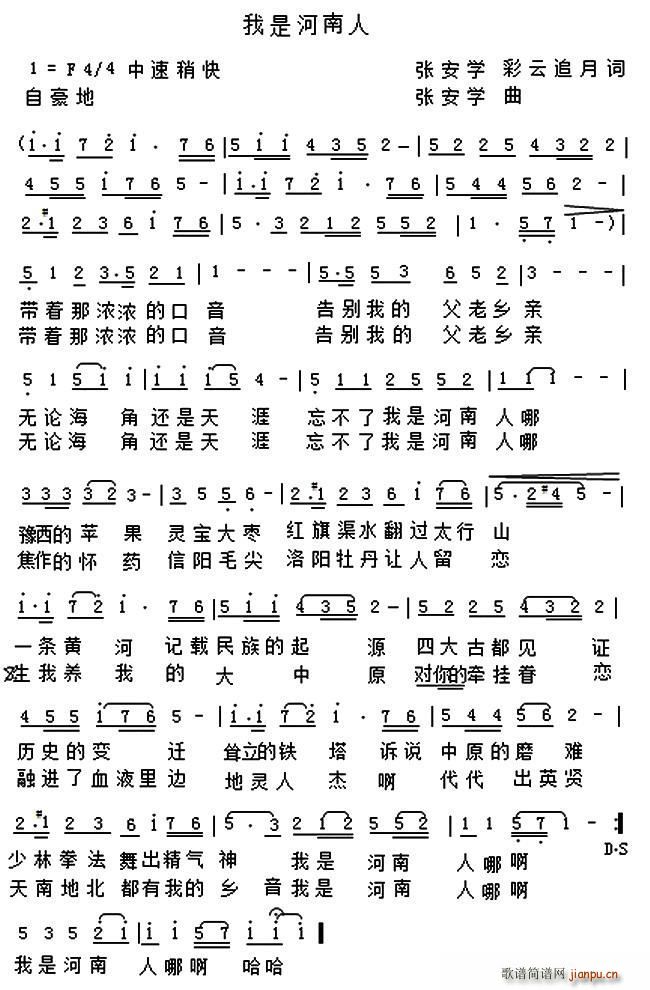 我是河南人
1 = F 4/4 中速稍快 张安学 彩云追月 词
自豪地 张安学 曲
(i·i 7 2 i · 7 6 | 5 i i 4 3 5 2 – | 5 2 2 5 4 3 2 2 |
4 5 5 i 7 6 5 - | i·i 7 2 i · 7 6 | 5 4 4 5 6 2 - |
2·#1 2 3 6 i 7 6 | 5 · 3 2 1 2 5 5 2 | 1 · 5 7 1 -) |
5 1 2 3·5 2 1 | 1 - - - | 5·5 5 3 6 5 2 | 3 - - - |
带着那浓浓的口音 告别我的 父老乡亲
带着那浓浓的口音 告别我的 父老乡亲
5 1 5 i i | i i i i 5 4 - | 5 1 1 2 5 5 2 | 1 1 1 - - |
无论海 角 还是天 涯 忘不了我是河南 人哪
无论海 角 还是天 涯 忘不了我是河南 人哪
3 3 3 3 2 3 - | 3 5 5 6 - | 2·#1 2 3 6 i 7 6 | 5·2#4 5 - |
豫西的 苹 果 灵宝大枣 红旗渠水翻过太行山
焦作的 怀 药 信阳毛尖 洛阳牡丹让人留 恋
i·i 7 2 i · 7 6 | 5 i i 4 3 5 2 - | 5 2 2 5 4 3 2 2 |
一条黄 河 记载民族的起 源 四大古都见 证
生我养 我 的 大 中 原 对你的牵挂眷 恋
4 5 5 i 7 6 5 - | i·i 7 2 i · 7 6 | 5 4 4 5 6 2 - |
历史的变 迁 耸立的铁 塔 诉说 中原的磨 难
融进了血液里边 地灵人 杰 啊 代代 出英贤
2·#1 2 3 6 i 7 6 | 5 · 3 2 1 2 5 5 2 | 1 1 5 7 1 - :|
D·S
少林拳法 舞出精气 神 我是 河南 人 哪啊
天南地北 都有我的 乡 音我是 河南 人 哪啊
5 3 5 2 i | i i 5 7 i i i ‖
我是河南 人 哪啊 哈哈
歌谱简谱网 jianpu.cn